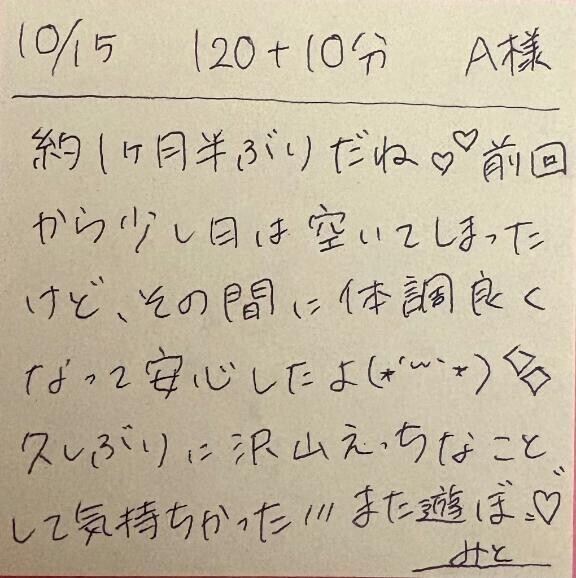 10/15 120+10分 A様
約1ヶ月半ぶりだね♡♡前回
から少し日は空いてしまった
けど、その間に体調良く
なって安心したよ(*´ω`*)◇◇
久しぶりに沢山えっちなこと
して気持ちかった!!!また遊ぼ♡
みと